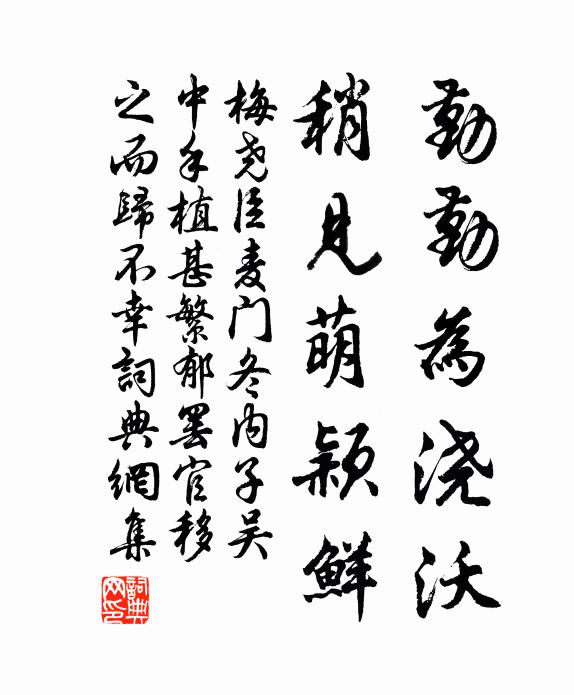 勤勤為浇沃
稍見萌颖鮮
梅尧臣麦门冬内子吴
中手植甚繁郁罢官移
之而歸不幸詞典網集
詞典